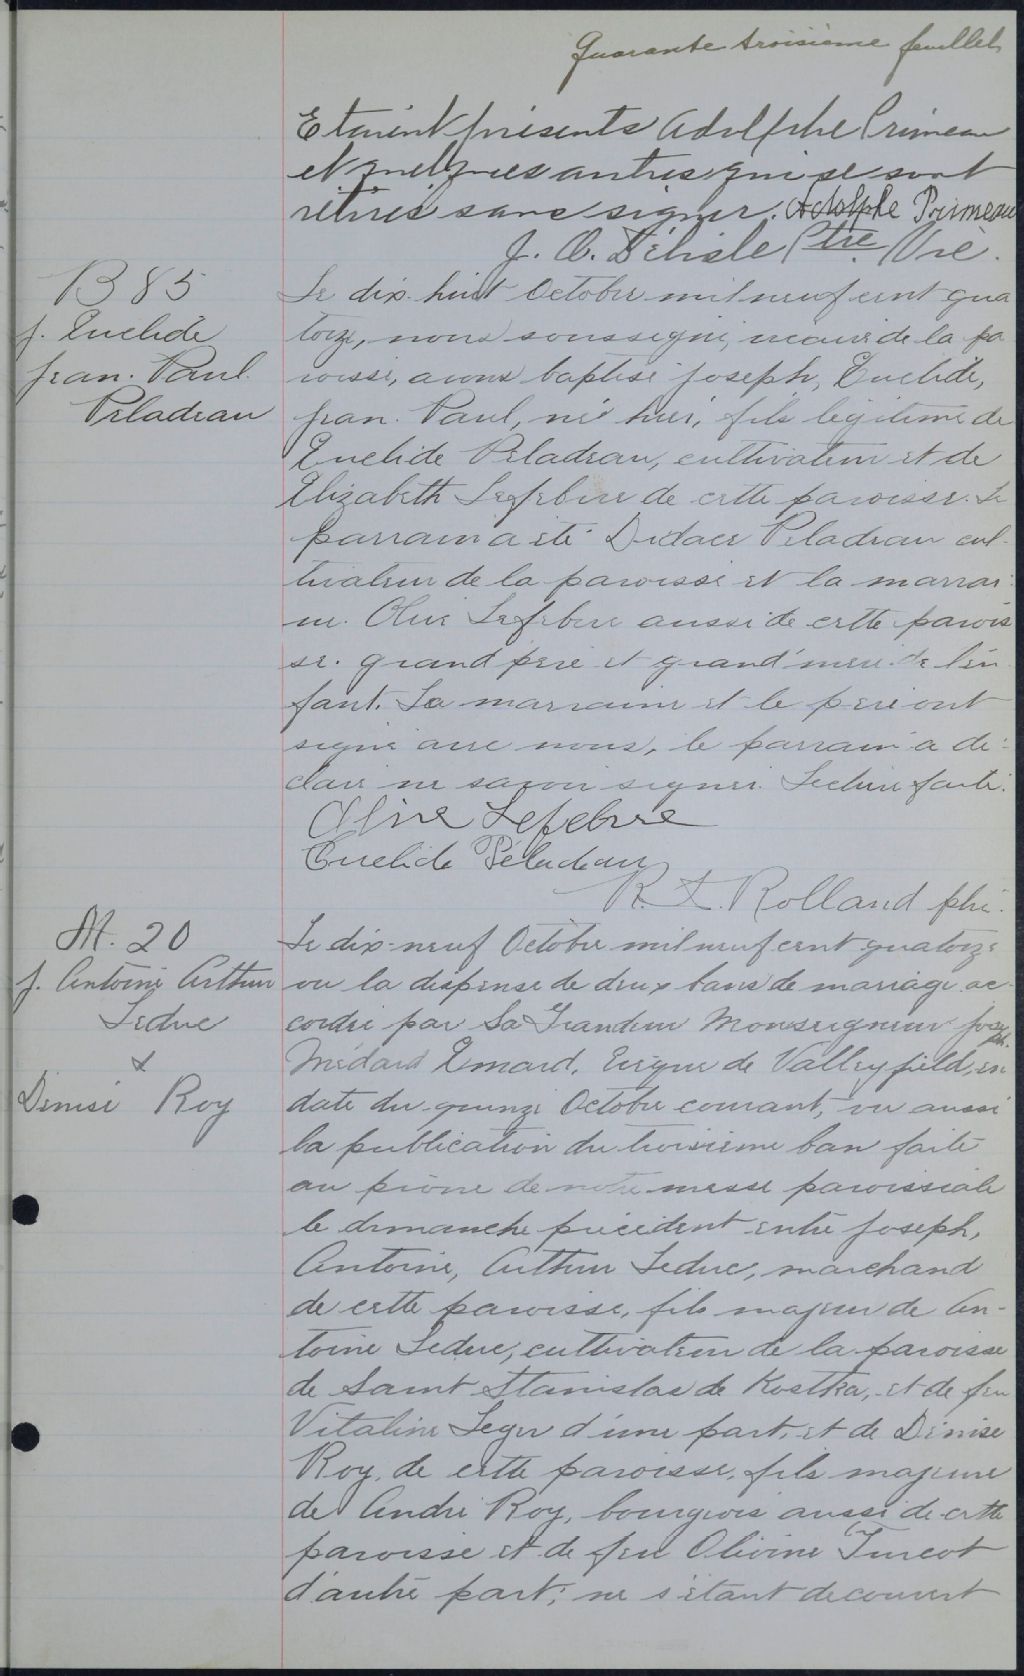 Quarante troisième feuillet
Etaient présents Adolphe Primeau
et quelques autres qui se sont
retirés sans signer. Adolphe Primeau
J. A. Délisle Ptre Vic.
B 85
J. Euclide
Jean. Paul.
Peladeau
Le dix-huit Octobre mil neuf cent qua
torze, nous soussigné, vicaire de la pa
roisse, avons baptisé Joseph, Euclide,
Jean. Paul, né hier, fils légitime de
Euclide Peladeau, cultivateur et de
Elizabeth Lefebvre de cette paroisse. Le
parrain a été Didace Peladeau cul-
tivateur de la paroisse et la marrai-
ne. Olive Lefebvre aussi de cette parois
se. grand père et grand'mère de l'en
fant. La marraine et le père ont
signé avec nous, le parrain a dé-
claré ne savoir signer. Lecture faite.
Olive Lefebvre
Euclide Péladeau
R. X. Rolland ptre.
M. 20
J. Antoine Arthur
Leduc
&
Dénise Roy
Le dix-neuf Octobre mil neuf cent quatorze
vu la dispense de deux bans de mariage ac-
cordée par Sa Grandeur Monseigneur Joseph.
Médard Emard, Evêque de Valleyfield, en
date du quinze Octobre courant, vu aussi
la publication du troisième ban faite
au prône de notre messe paroissiale
le dimanche précédent entre Joseph,
Antoine, Arthur Leduc, marchand
de cette paroisse, fils majeur de An-
toine Leduc, cultivateur de la paroisse
de Saint Stanislas de Kostka, et de feu
Vitaline Leger d'une part, et de Dénise
Roy, de cette paroisse, fils majeure
de André Roy, bourgeois aussi de cette
paroisse et de feu Olivine Turcot
d'autre part; ne s'étant decouvert